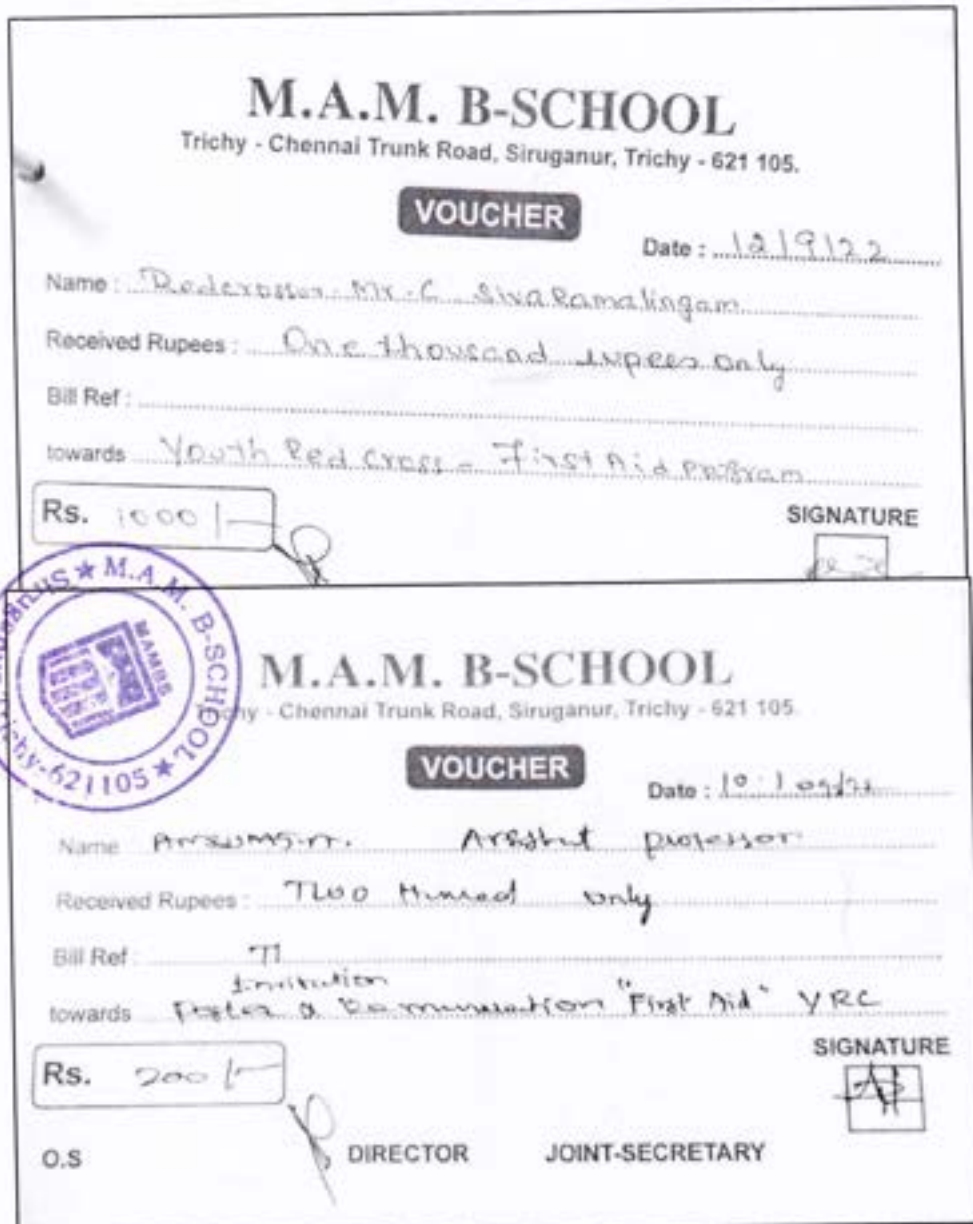 M.A.M. B-SCHOOL
Trichy - Chennai Trunk Road, Siruganur, Trichy - 621 105.
VOUCHER
Date : 12/9/22
Name : Redcrosser Mr. C SivaRamalingam
Received Rupees : One thousand rupees only
Bill Ref :
towards Youth Red Cross - First Aid Program
Rs. 1000/-
SIGNATURE
M.A.M. B-SCHOOL
MAMBS
Trichy-621105
M.A.M. B-SCHOOL
Trichy - Chennai Trunk Road, Siruganur, Trichy - 621 105.
VOUCHER
Date :
Name professor
Received Rupees : Two only
Bill Ref :
Invitation
towards "First Aid" YRC
Rs. 200/-
SIGNATURE
O.S DIRECTOR JOINT-SECRETARY